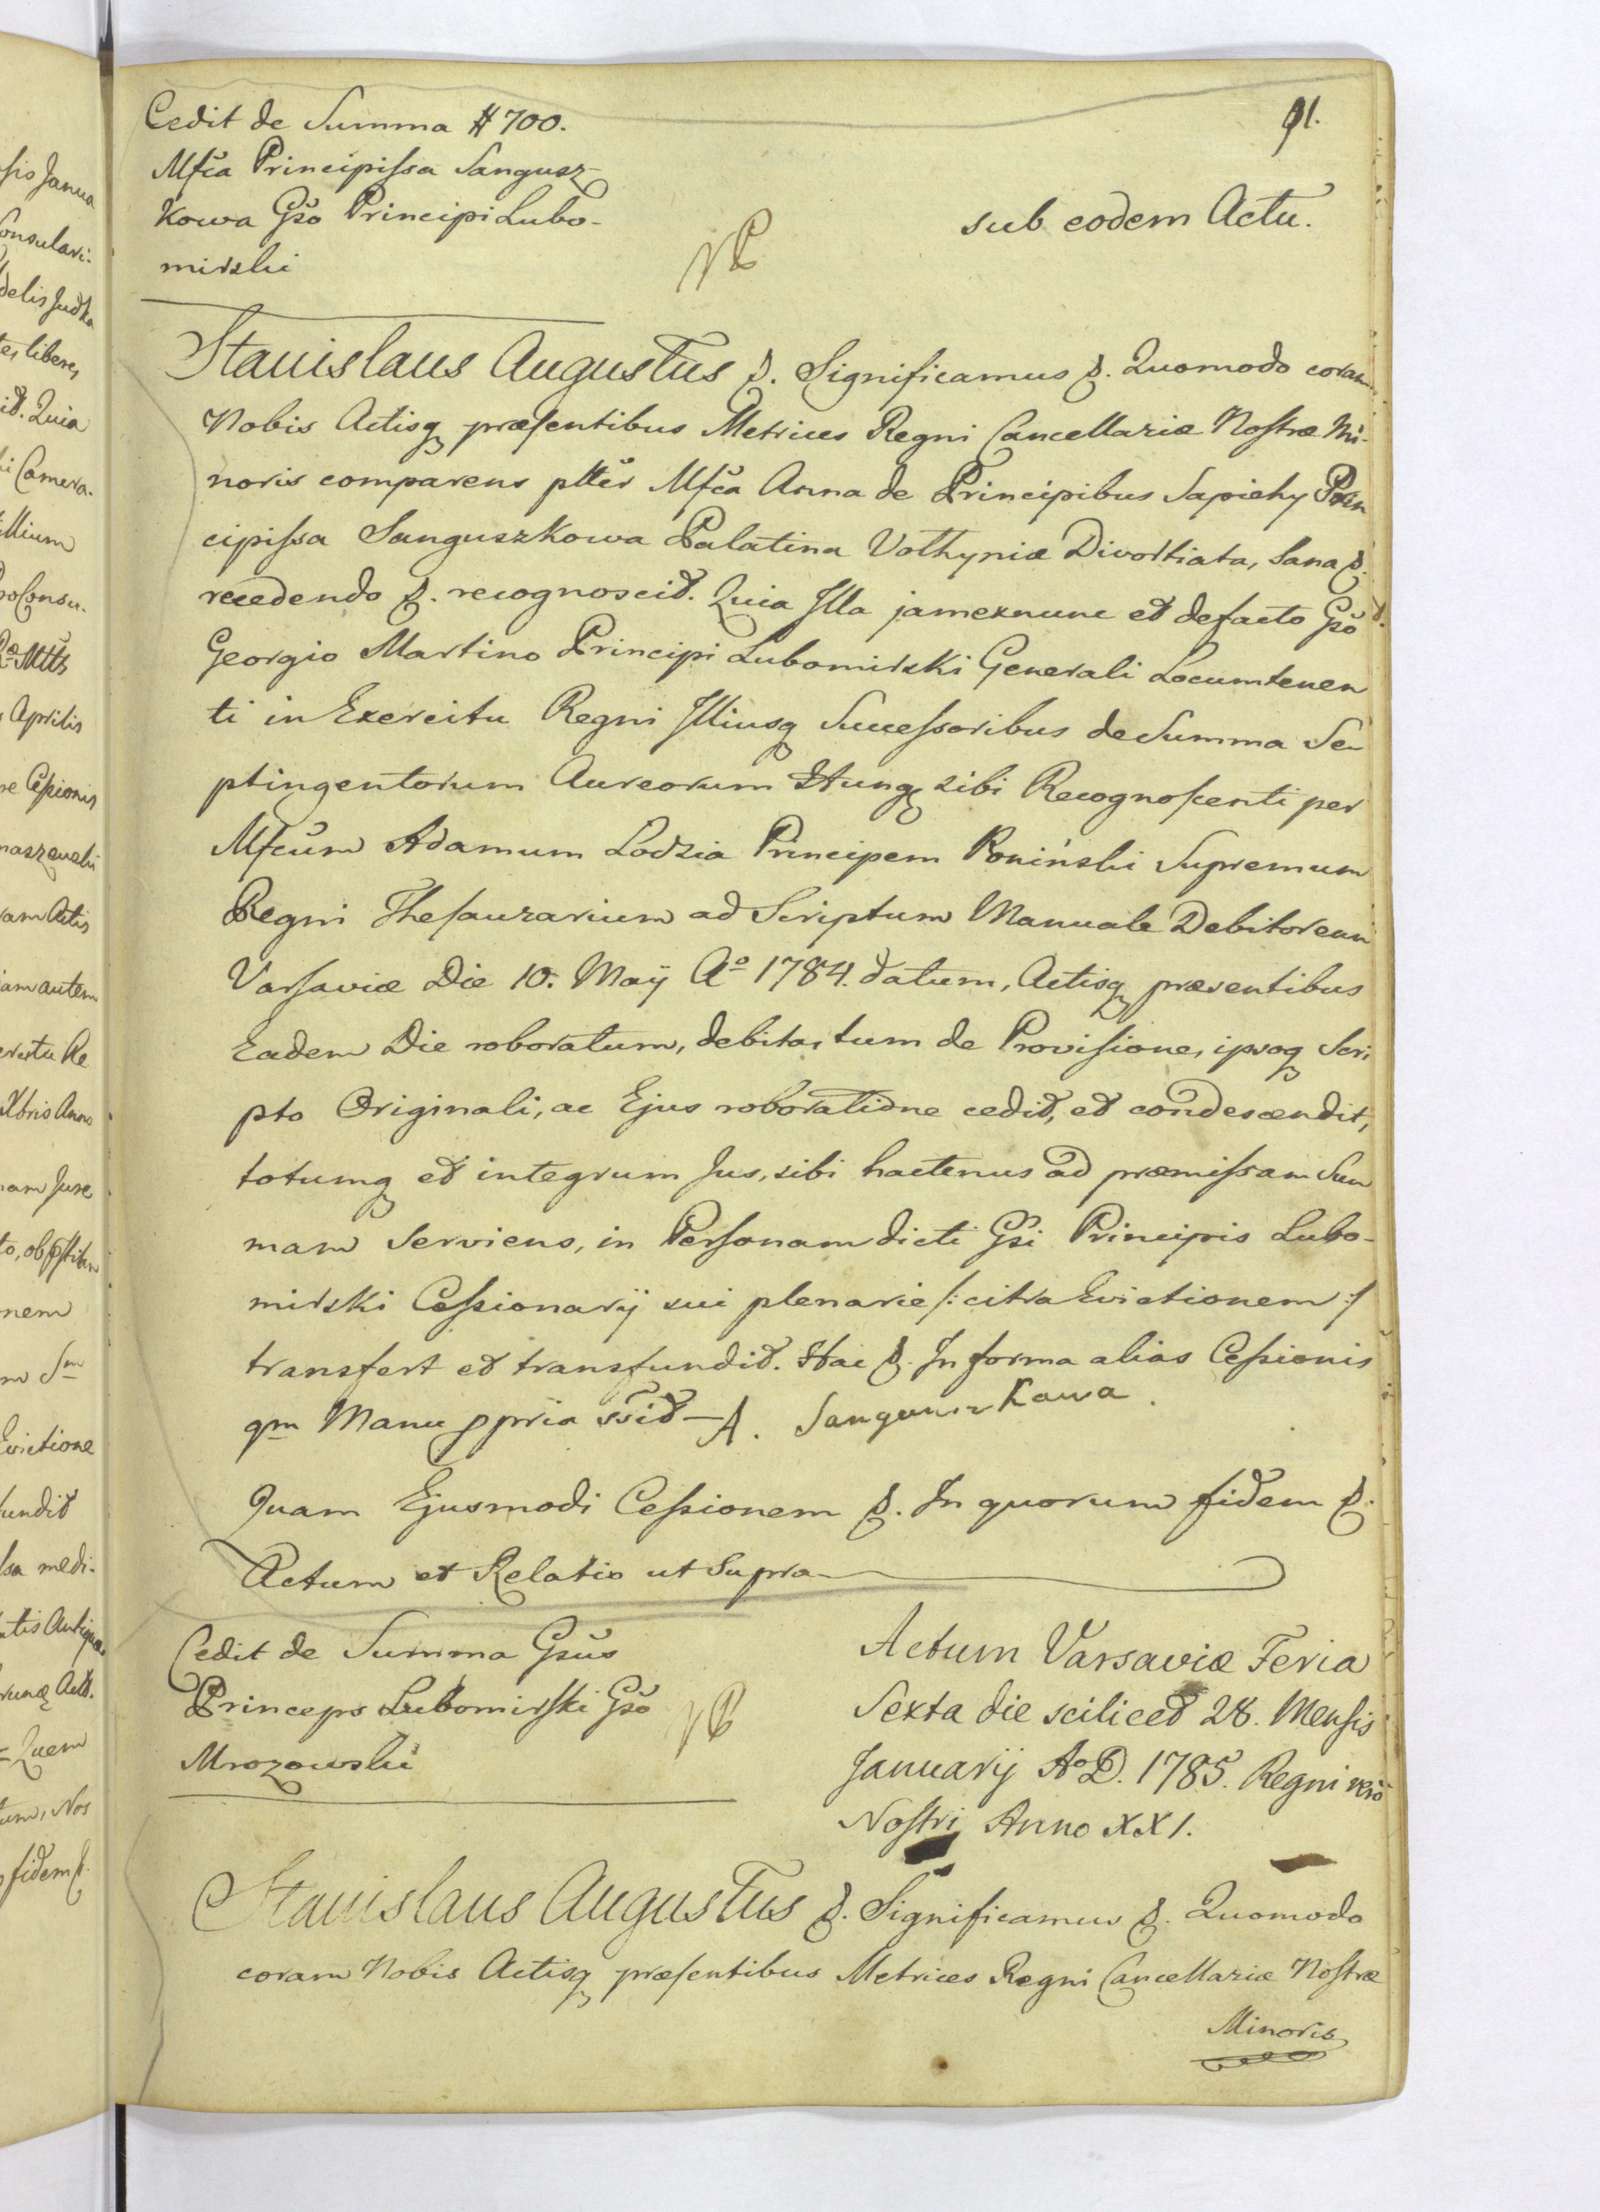 91.
Cedit de Summa # 700.
Mfča Principissa Sangusz-
kowa Gšo Principi Lubo-
mirski
sub eodem Actu.
Stanislaus Augustus &. Significamus &. Quomodo coram
Nobis Actisq præsentibus Metrices Regni Cancellariæ Nostræ Mi-
noris comparens plter Mfča Anna de Principibus Sapiehy Prin
cipissa Sanguszkowa Palatina Volhyniæ Divortiata, Sana &.
recedendo &. recognoscit. Quia Illa jam exnunc et defacto Gšo
Georgio Martino Principi Lubomirski Generali Locumtenen
ti in Exercitu Regni Illiusq Successoribus de Summa Se-
ptingentorum Aureorum Hung sibi Recognoscenti per
Mfcum Adamum Lodzia Principem Poniński Supremum
Regni Thesaurarium ad Scriptum Manuale Debitoreum
Varsaviæ Die 10. Maij Aº 1784. datum, Actisq præsentibus
Eadem Die roboratum, debita, tum de Provisione, ipsoq Scri
pto Originali, ac Ejus roboratione cedit, et condescendit,
totumq et integrum Jus, sibi hactenus ad præmissam Sum
mam Serviens, in Personam dicti Gši Principis Lubo-
mirski Cessionarij sui plenarie /: citra Evictionem :/
transfert et transfundit. Hac &. In forma alias Cessionis
qm Manu ppria ssit — A. Sanguszkowa.
Quam Ejusmodi Cessionem &. In quorum fidem &.
Actum et Relatio ut Supra
Cedit de Summa Gsus
Princeps Lubomirski Gšo
Mrozowski
Actum Varsaviæ Feria
Sexta die scilicet 28. Mensis
Januarij Aº D. 1785. Regni vero
Nostri Anno XXI.
Stanislaus Augustus &. Significamus &. Quomodo
coram Nobis Actisq præsentibus Metrices Regni Cancellariæ Nostræ
Minoris